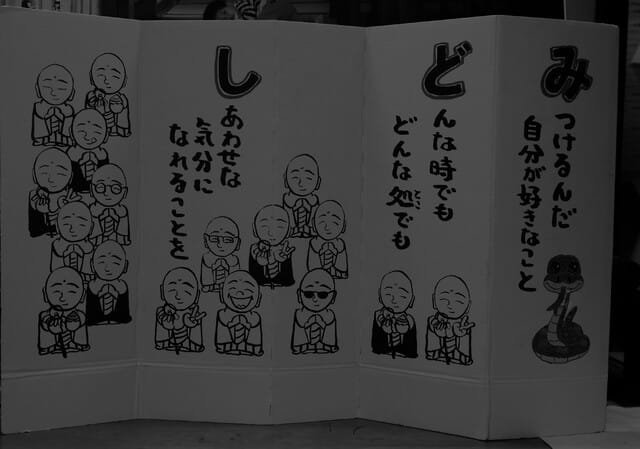 み
つけるんだ
自分が好きなこと
ど
んな時でも
どんな処でも
とき
し
あわせな
気分に
なれることを